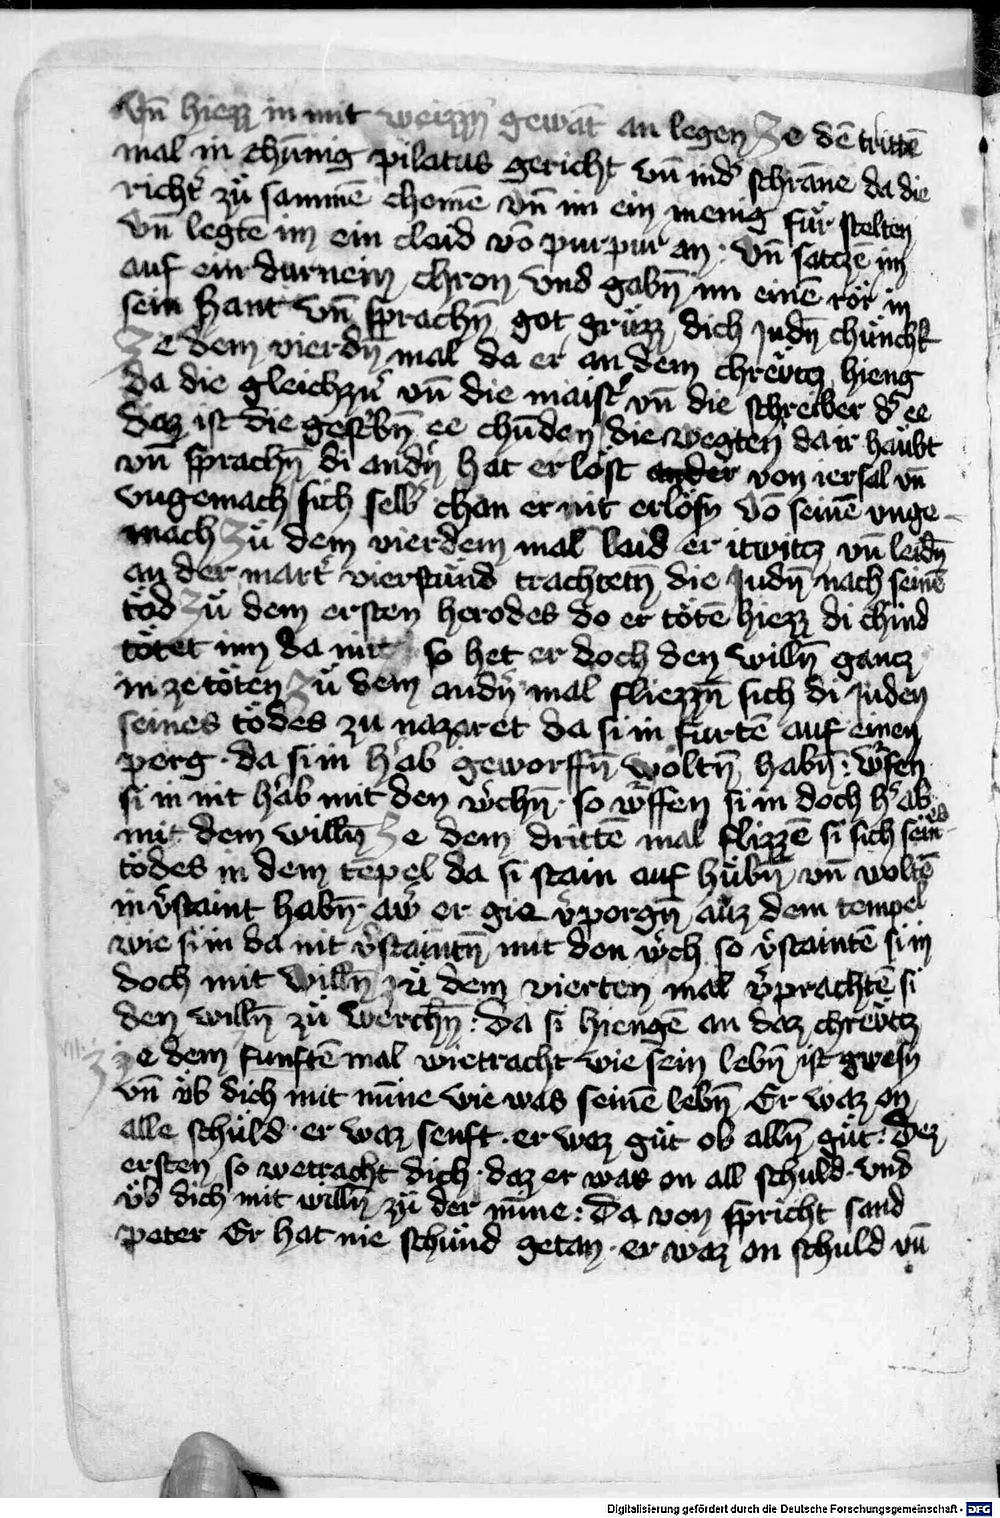 vn̄ hiezz in mit weizzn̄ gewāt an legen Ze dē trittē
mal in chūnig pilatus gericht vn̄ ind' schrāne da die
richt' zů sammē chomē vn̄ im ein menig fůr stelten
vn̄ legtē im ein claid vō purpur an · vn̄ satczē im
auf ein durnein chron vnd gabn̄ im einē rör in
sein hant vn̄ sprachn̄ got grůzz dich Judn̄ chůnck
Ze dem vierdn̄ mal da er an dem chrewtz hieng
da die gleichzn' vn̄ die maist' vn̄ die schreiber d' ee
daz ist die gest'bn̄ ee chūden die wegten da ir haubt
vn̄ sprachn̄ di andn̄ hat er löst von iersal vn̄
vngemach sich selb' chan er nit erlösn vō seinē vnge
mach Zů dem vierdem mal laid er itwitz vn̄ leidn̄
an der mart' vierstund trachtetn̄ die Judn̄ nach seinē
töd Zů dem ersten herodes do er tötē hiezz di chind
tötet im da nit so het er doch den willn̄ gancz
in ze töten Zů dem andn̄ mal fliezzn̄ sich di Juden
seines tödes zu nazaret da si in furtē auf einen
perg · da si in h'ab geworffn̄ woltn̄ habn̄ : w'fen
si in nit h'ab mit den w'chn̄ · so w'ffen si in doch h'ab
mit dem willn̄ Ze dem drittē mal flizzē si sich seines
tödes in dem tēpel da si stain auf hůbn̄ vn̄ woltē
in v'staint habn̄ · aw' er gie v'porgn̄ auz dem tempel
wie si in da nit v'staintn̄ mit den w'ch so v'staintē si in
doch mit willn̄ zů dem vierten mal v'prachtē si
den willn̄ zů werchn̄ : da si hiengē an daz chrewtz
ze dem funftē mal wietracht wie sein lebn̄ ist gwesn
vn̄ ůb dich mit mīne wie was seinē lebn̄ Er waz on
alle schůld · er waz senft · er waz gůt ob alln̄ gůt : Dez
ersten so wetracht dich · daz er waz on all schuld · vnd
ůb dich mit willn̄ zů der mīne : Da von spricht sand
peter Er hat nie schůnd getan · er waz on schuld vn̄
Digitalisierung gefördert durch die Deutsche Forschungsgemeinschaft - DFG